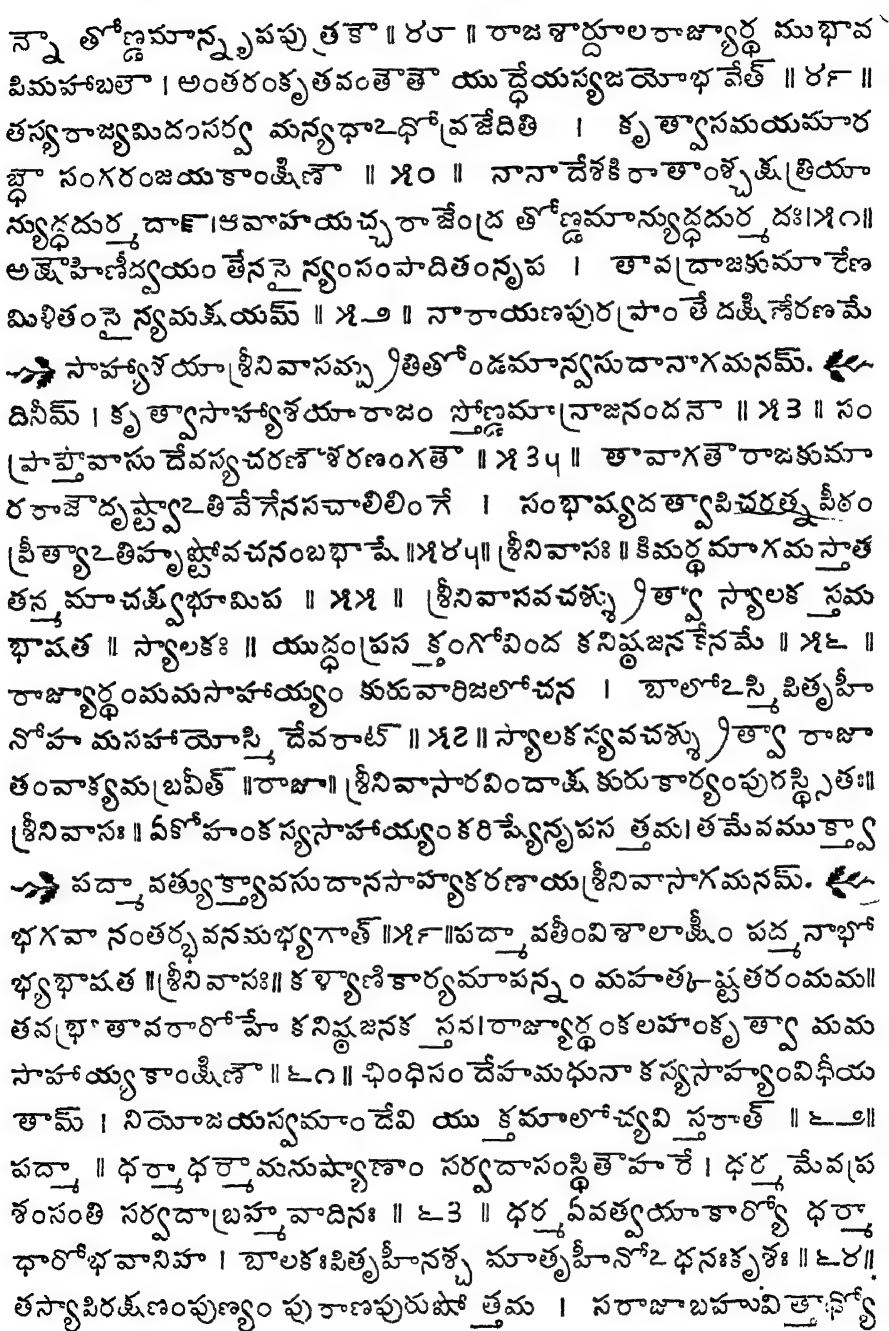 న్నౌ తోణ్డమాన్నృపపుత్రకౌ ॥ ౪౮ ॥ రాజశార్దూలరాజ్యార్థ ముభావ
పిమహాబలౌ । అంతరంకృతవంతౌతౌ యుద్ధేయస్యజయోభవేత్ ॥ ౪౯ ॥
తస్యరాజ్యమిదంసర్వ మన్యథాఽధోవ్రజేదితి । కృత్వాసమయమార
బ్ధౌ సంగరంజయకాంక్షిణౌ ॥ ౫౦ ॥ నానాదేశకిరాతాంశ్చక్షత్రియా
న్యుద్ధదుర్మదాౝ।ఆవాహయచ్చరాజేంద్ర తోణ్డమాన్యుద్ధదుర్మదః।౫౧॥
అక్షౌహిణీద్వయం తేనసైన్యంసంపాదితంనృప । తావద్రాజకుమారేణ
మిళితంసైన్యమక్షయమ్ ॥ ౫౨ ॥ నారాయణపురప్రాంతే దక్షిణేరణమే
సాహ్యాశయాశ్రీనివాసమ్ప్రతితోండమాన్వసుదానాగమనమ్.
దినీమ్ । కృత్వాసాహ్యాశయారాజం స్తోణ్డమాన్రాజనందనౌ ॥ ౫౩ ॥ సం
ప్రాప్తౌవాసుదేవస్యచరణౌశరణంగతౌ ॥ ౫౩౺ ॥ తావాగతౌరాజకుమా
రరాజౌదృష్ట్వాఽతివేగేనసచాలిలింగే । సంభాష్యదత్వాపిచరత్నపీఠం
ప్రీత్యాఽతిహృష్టోవచనంబభాషే ॥౫౪౺॥ శ్రీనివాసః ॥ కిమర్థమాగమస్తాత
తన్మమాచక్ష్వభూమిప ॥ ౫౫ ॥ శ్రీనివాసవచశ్శ్రుత్వా స్యాలకస్తమ
భాషత ॥ స్యాలకః ॥ యుద్ధంప్రసక్తంగోవింద కనిష్ఠజనకేనమే ॥ ౫౬ ॥
రాజ్యార్థంమమసాహాయ్యం కురువారిజలోచన । బాలోఽస్మిపితృహీ
నోహ మసహాయోస్మి దేవరాట్ ॥ ౫౭ ॥ స్యాలకస్యవచశ్శ్రుత్వా రాజా
తంవాక్యమబ్రవీత్ ॥రాజా॥ శ్రీనివాసారవిందాక్ష కురుకార్యంపురస్థితః॥
శ్రీనివాసః ॥ ఏకోహంకస్యసాహాయ్యంకరిష్యేనృపసత్తమ। తమేవముక్త్వా
పద్మావత్యుక్త్యావసుదానసాహ్యకరణాయశ్రీనివాసాగమనమ్.
భగవా నంతర్భవనమభ్యగాత్ ॥౫౯॥పద్మావతీంవిశాలాక్షీం పద్మనాభో
భ్యభాషత ॥శ్రీనివాసః॥ కళ్యాణికార్యమాపన్నం మహత్కష్టతరంమమ॥
తవభ్రాతావరారోహే కనిష్ఠజనకస్తవ।రాజ్యార్థంకలహంకృత్వా మమ
సాహాయ్యకాంక్షిణౌ ॥ ౬౧ ॥ ఛింధిసందేహమధునా కస్యసాహ్యంవిధీయ
తామ్ । నియోజయస్వమాందేవి యుక్తమాలోచ్యవిస్తరాత్ ॥ ౬౨॥
పద్మా ॥ ధర్మాధర్మౌమనుష్యాణాం సర్వదాసంస్థితౌహరే । ధర్మమేవప్ర
శంసంతి సర్వదాబ్రహ్మవాదినః ॥ ౬౩ ॥ ధర్మఏవత్వయాకార్యో ధర్మా
ధారోభవానిహ । బాలకఃపితృహీనశ్చ మాతృహీనోఽధనఃకృశః ॥౬౪॥
తస్యాపిరక్షణంపుణ్యం పురాణపురుషోత్తమ । సరాజాబహువిత్తాఢ్యో